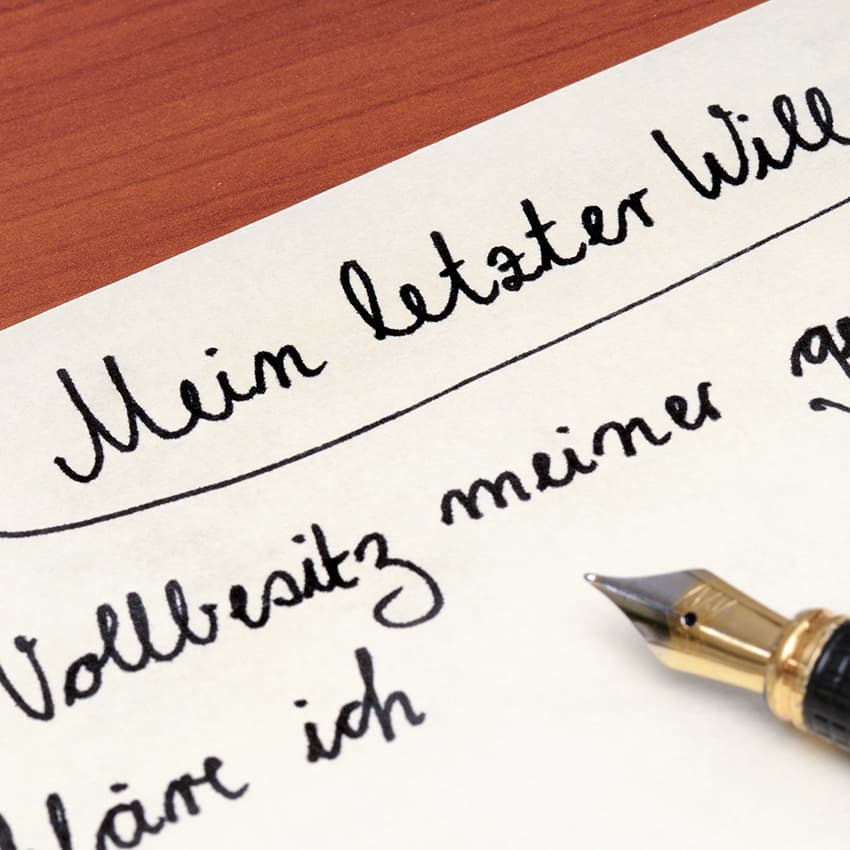 Mein letzter Will
Vollbesitz meiner ge
kläre ich